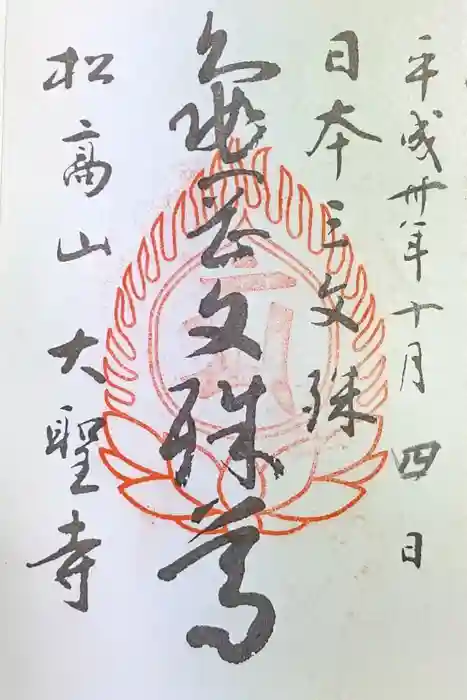 平成卅年十月四日
日本三文殊
亀岡文殊尊
松高山 大聖寺